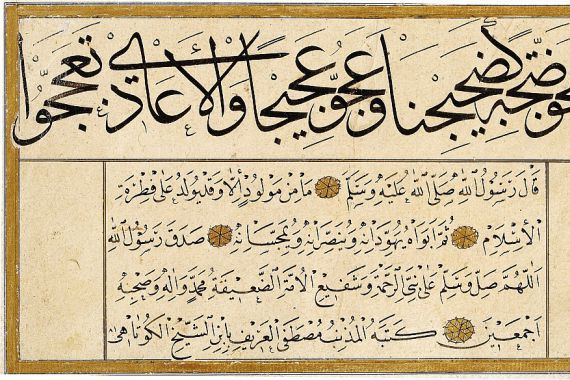 كضجيجنا وعجو عجيجا والأعادي تعججوا
قال رسول الله صلى الله عليه وسلم ما من مولود الا وقد يولد على فطرة
الاسلام ثم ابواه يهودانه وينصرانه ويمجسانه صدق رسول الله
اللهم صل وسلم على نبي الرحمة وشفيع الامة الضعيفة محمد واله وصحبه
اجمعين كتبه المذنب مصطفى العريف بابن الشيخ الكوتاهي